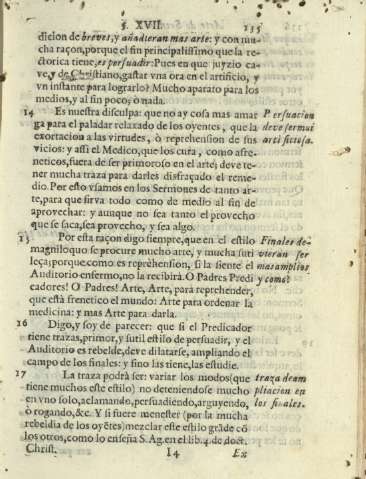 §. XVII. 135
dielon de breves, y añadieran mas arte: y con mu-
cha raçon, porque el fin principalissimo que la re-
ctorica tiene, es persuadir: Pues en que juyzio ca-
ve, y de Christiano, gastar vna ora en el artificio, y
vn instante para lograrlo? Mucho aparato para los
medios, y al fin poco, o nada.
14 Es nuestra disculpa: que no ay cosa mas amar
ga para el paladar relaxado de los oyentes, que la
exortacion a las virtudes, ò reprehension de sus
vicios: y assi el Medico, que los cura, como afre-
neticos, fuera de ser primoroso en el arte; deve te-
ner mucha traza para darles disfraçado el reme-
dio. Por esto vsamos en los Sermones de tanto ar-
te, para que sirva todo como de medio al fin de
aprovechar: y aunque no sea tanto el provecho
que se saca, sea provecho, y sea algo.
Persuacion
deve ser mui
artificiosa.
15 Por esta raçon digo siempre, que en el estilo
magniloquo se procure mucho arte, y mucha suti
leça; porque como es reprehension, si la siente el
Auditorio enfermo, no la recibirà. O Padres Predi
cadores! O Padres! Arte, Arte, para reprehender,
que està frenetico el mundo: Arte para ordenar la
medicina: y mas Arte para darla.
Finales de-
vieran ser
mas amplios
y como?
16 Digo, y soy de parecer: que si el Predicador
tiene trazas, primor, y sutil estilo de persuadir, y el
Auditorio es rebelde, deve dilatarse, ampliando el
campo de los finales: y sino las tiene, las estudie.
17 La traza podrà ser: variar los modos (que
tiene muchos este estilo) no deteniendose mucho
en vno solo, aclamando, persuadiendo, arguyendo,
ò rogando, &c. Y si fuere menester (por la mucha
rebeldia de los oyẽtes) mezclar este estilo grãde cõ
los otros, como lo enseña S. Ag. en el lib. 4. de doct.
Christ.
traza de am
pliacion en
los finales.
I4 Ex